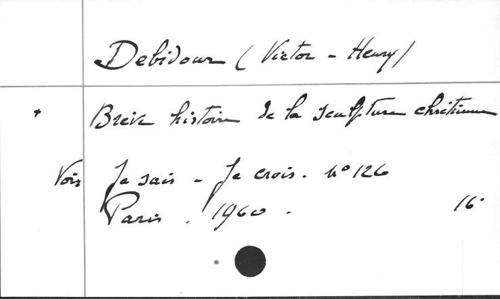 Debidour (Victor - Henry)
* Brève histoire de la sculpture chrétienne
Vois Je sais - Je crois. N° 126
Paris. 1960. 16°